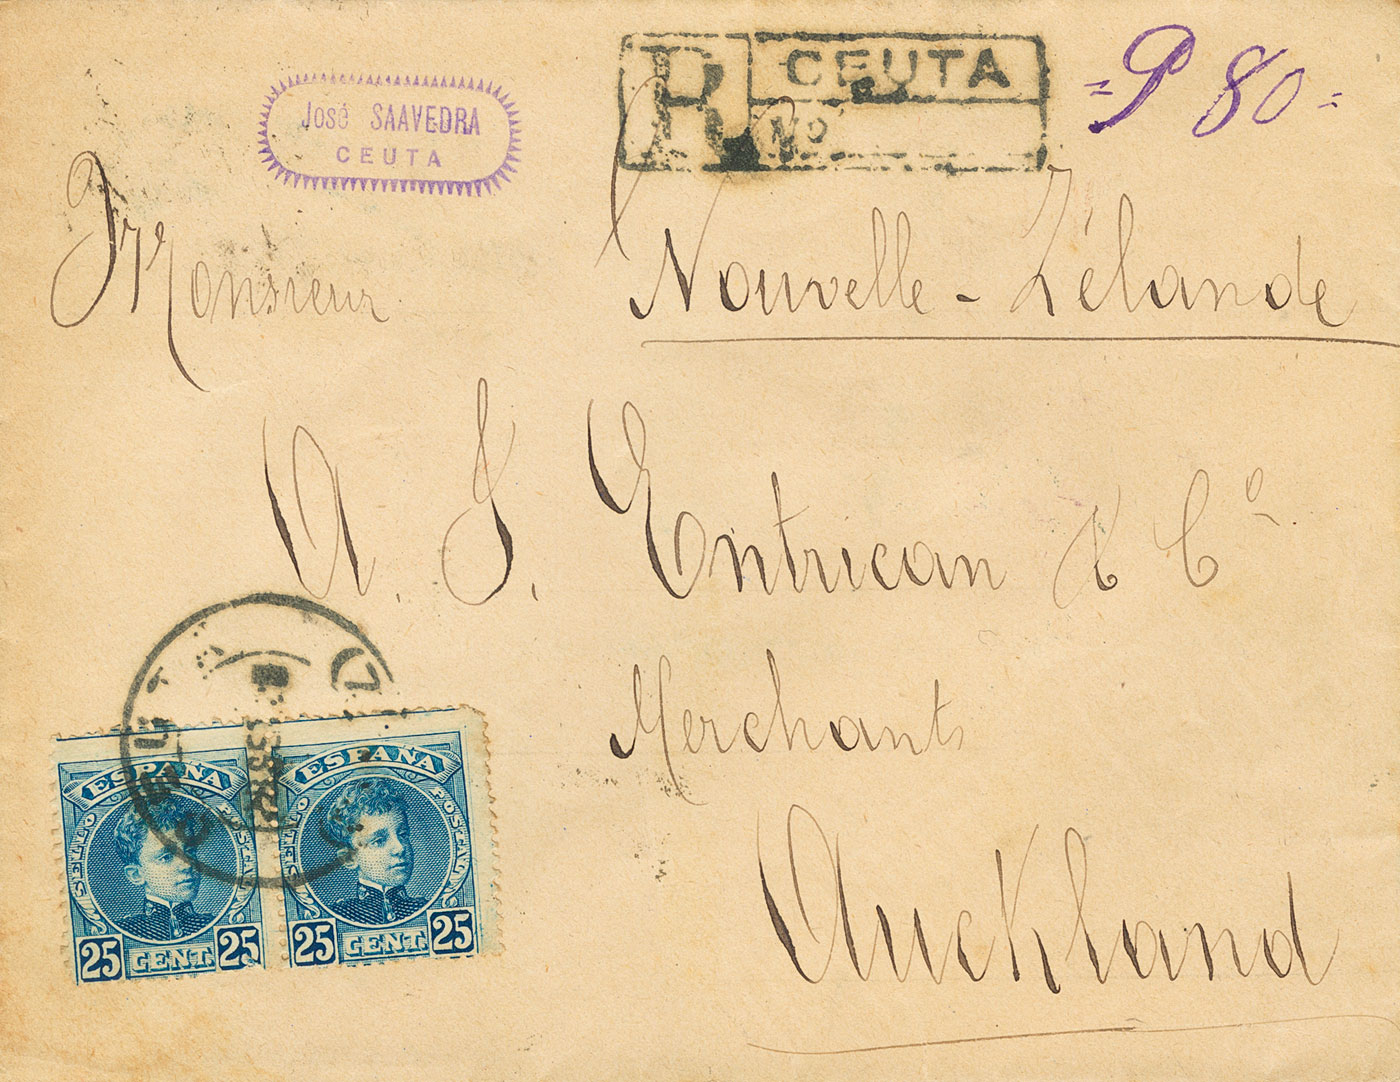 José SAAVEDRA
CEUTA
R CEUTA
No
= P 80 =
Monsieur
Nouvelle - Zélande
A. J. Entrican & Cº
Merchants
Auckland
ESPAÑA
SELLO POSTAL
25 CENT. 25
ESPAÑA
SELLO POSTAL
25 CENT. 25